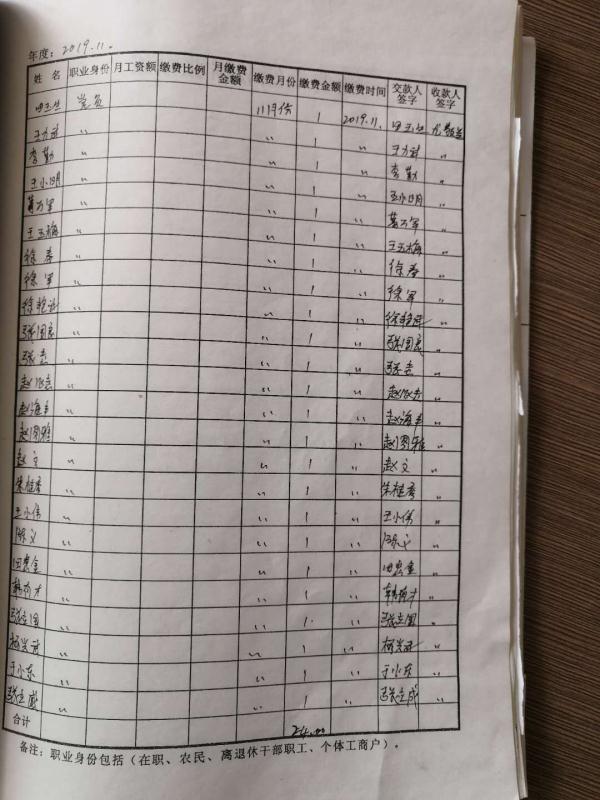 年度：2019.11.
姓 名 职业身份 月工资额 缴费比例 月缴费金额 缴费月份 缴费金额 缴费时间 交款人签字 收款人签字
田玉生 党员 11月份 1 2019.11. 田玉生
王力武 〃 〃 1 〃 王力武 〃
李勤 〃 〃 1 〃 李勤 〃
王小明 〃 〃 1 〃 王小明 〃
葛万军 〃 〃 1 〃 葛万军 〃
王玉梅 〃 〃 1 〃 王玉梅 〃
徐寿 〃 〃 1 〃 徐寿 〃
徐军 〃 〃 1 〃 徐军 〃
徐艳 〃 〃 1 〃 徐艳 〃
张国良 〃 〃 1 〃 张国良 〃
张志 〃 〃 1 〃 张志 〃
赵 〃 〃 1 〃 赵 〃
赵海丰 〃 〃 1 〃 赵海丰 〃
赵国雅 〃 〃 1 〃 赵国雅 〃
赵文 〃 〃 1 〃 赵文 〃
朱桂秀 〃 〃 1 〃 朱桂秀 〃
王小伟 〃 〃 1 〃 王小伟 〃
陈文 〃 〃 1 〃 陈文 〃
田宝金 〃 〃 1 〃 田宝金 〃
韩树才 〃 〃 1 〃 韩树才 〃
张立国 〃 〃 1 〃 张立国 〃
杨光武 〃 〃 1 〃 杨光武 〃
于小东 〃 〃 1 〃 于小东 〃
张立成 〃 〃 1 〃 张立成 〃
合计 24.00
备注：职业身份包括（在职、农民、离退休干部职工、个体工商户）。